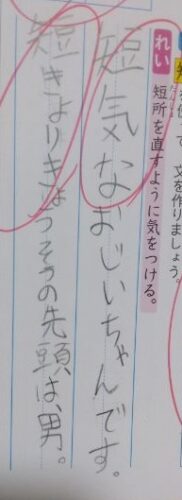 文を作りましょう。
れい 短所を直すように気をつける。
短気なおじいちゃんです。
短きょりきょうそうの先頭は、男。